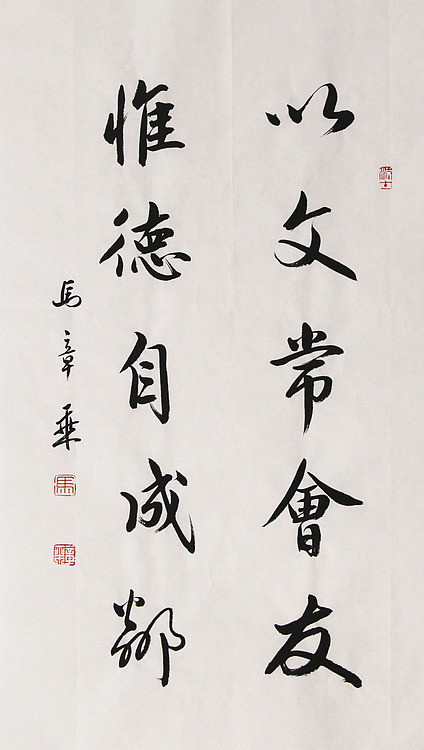 以文常會友
惟德自成鄰
馬章乘